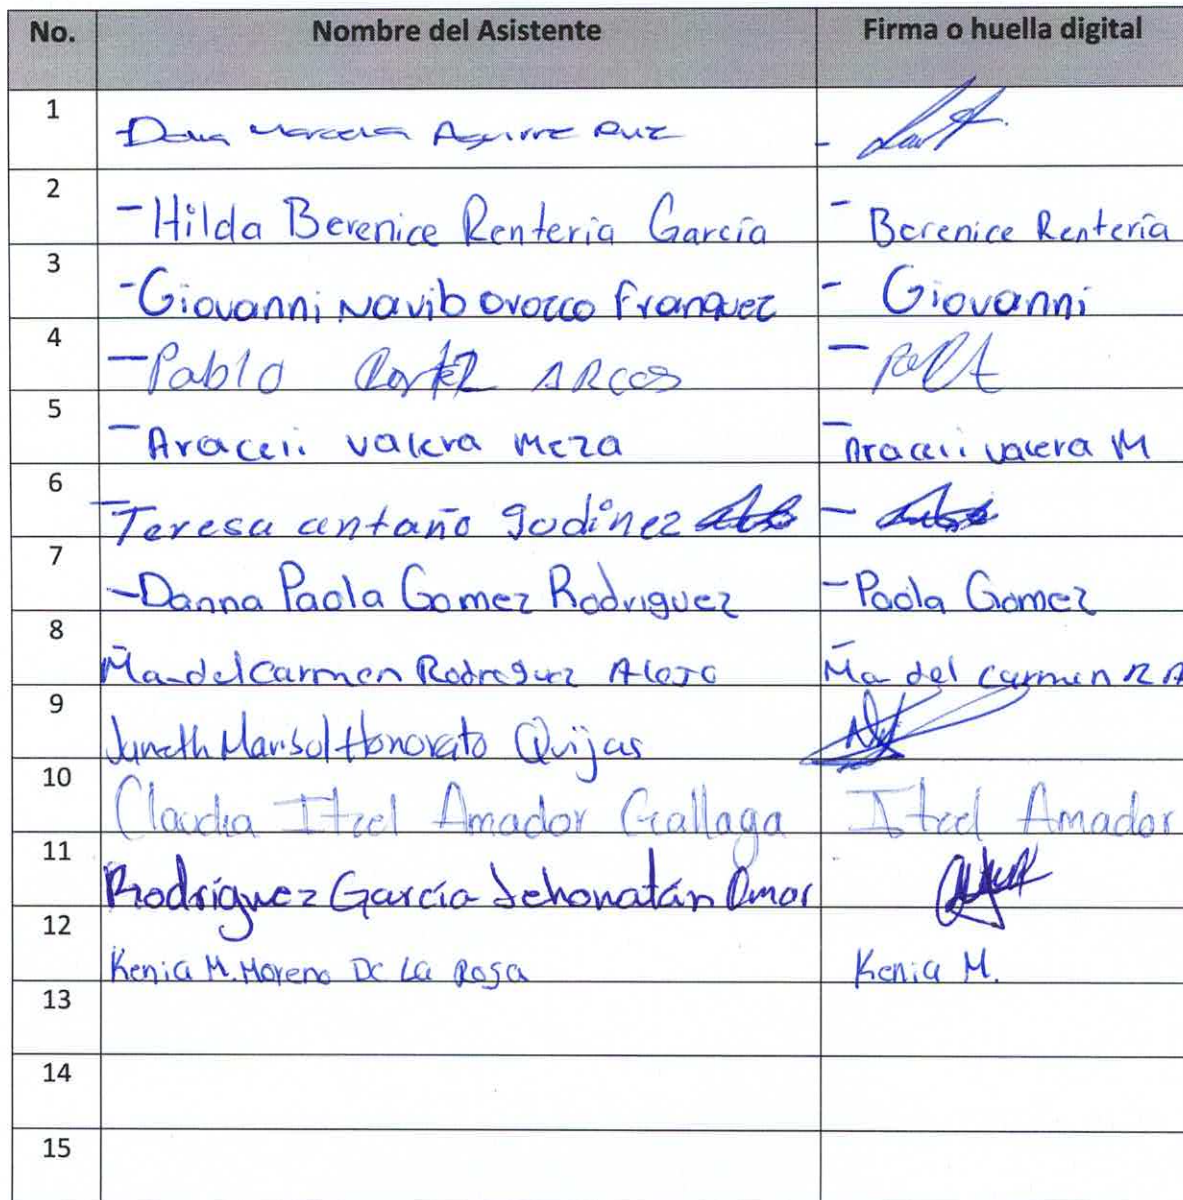 No. Nombre del Asistente Firma o huella digital
1 Aguirre Ruiz -
2 -Hilda Berenice Renteria García - Berenice Rentería
3 -Giovanni Navib Orozco franquez - Giovanni
4 -Pablo ARCOS -
5 -Araceli valera meza -Araceli valera M
6 -Teresa antaño godínez -
7 -Danna Paola Gomez Rodriguez -Paola Gomez
8 Ma-del Carmen Rodreguez Alejo Ma del carmen R A
9 Janeth Marisol Honorato Quijas
10 Claudia Itzel Amador Gallaga Itzel Amador
11 Rodríguez García Jehonatán Omar
12 Kenia M. Moreno De La Rosa Kenia M.
13
14
15